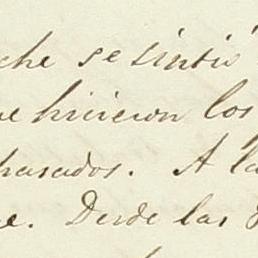 che se sintió
ue hicieron los
hasados. A la
e. Desde las